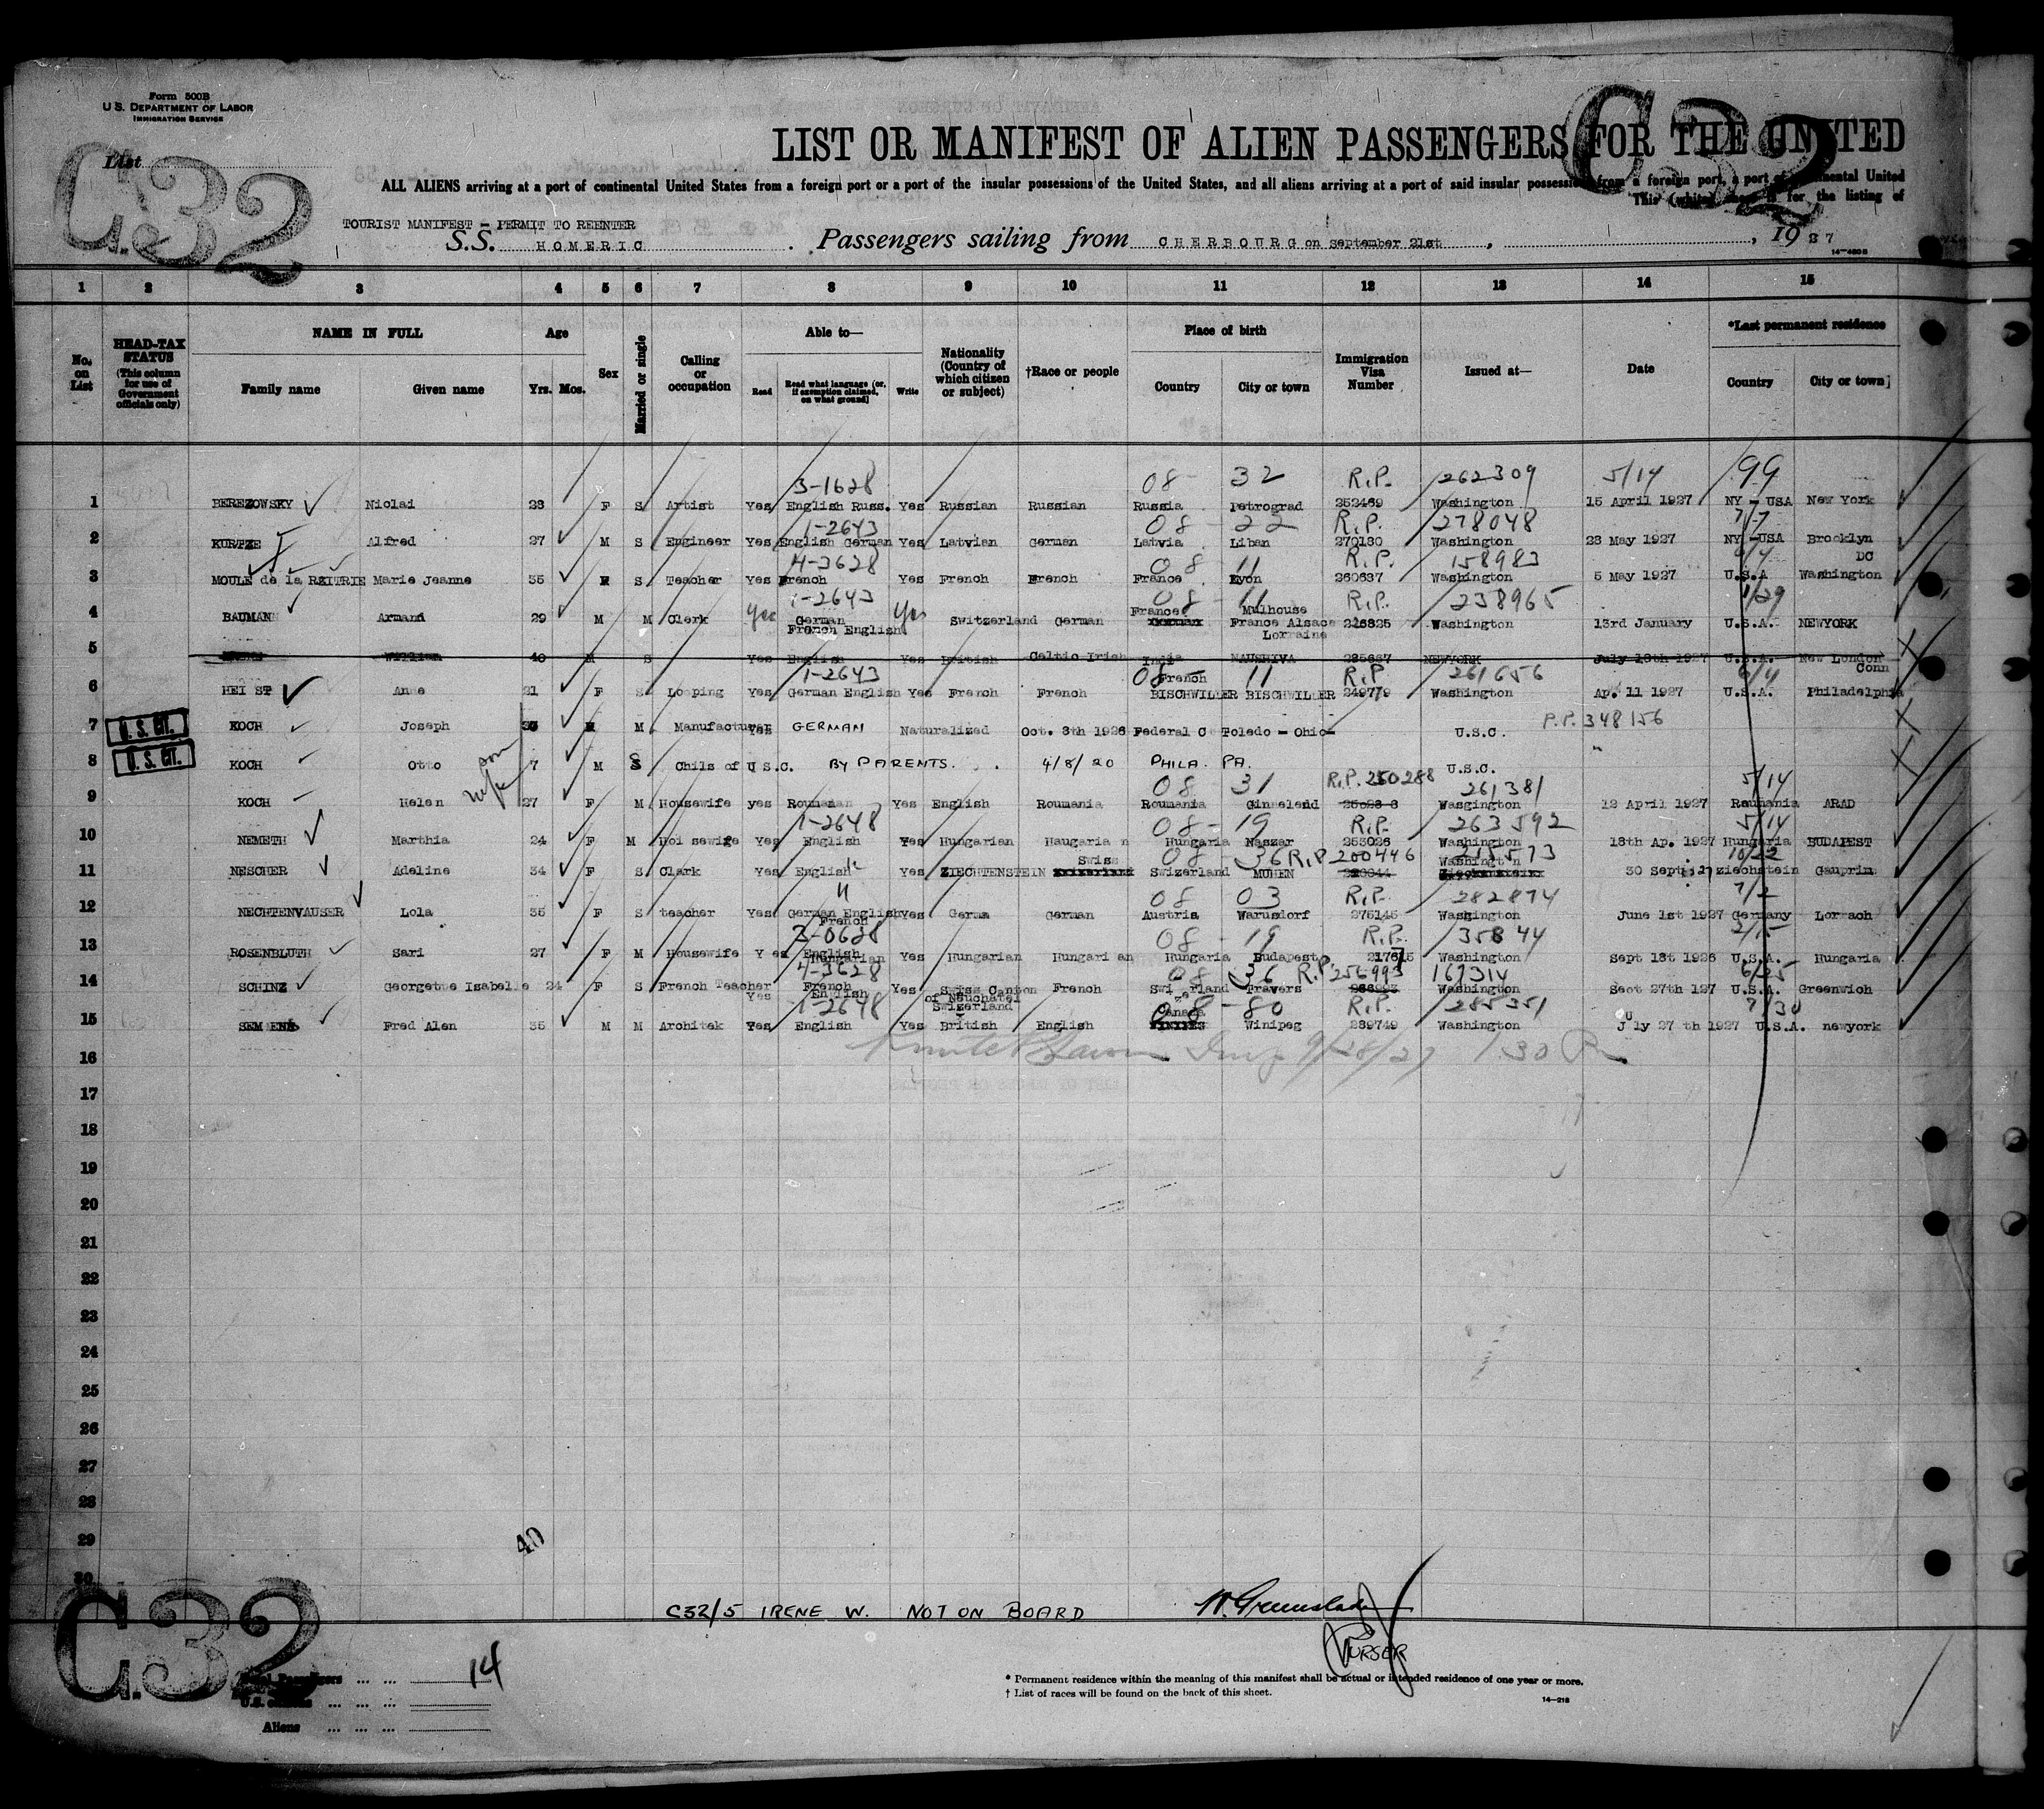 Form 500B
U.S. DEPARTMENT OF LABOR
IMMIGRATION SERVICE
List
C.32
C32
LIST OR MANIFEST OF ALIEN PASSENGERS FOR THE UNITED
ALL ALIENS arriving at a port of continental United States from a foreign port or a port of the insular possessions of the United States, and all aliens arriving at a port of said insular possessions from a foreign port, a port of continental United
This (white) sheet is for the listing of
TOURIST MANIFEST - PERMIT TO REENTER
S.S. HOMERIC . Passengers sailing from CHERBOURG on September 21st , , 1927
14-430B
1 2 3 4 5 6 7 8 9 10 11 12 13 14 15
No. on List
HEAD-TAX STATUS (This column for use of Government officials only)
NAME IN FULL
Family name Given name
Age
Yrs. Mos.
Sex
Married or single
Calling or occupation
Able to—
Read Read what language (or, if exemption claimed, on what ground) Write
Nationality (Country of which citizen or subject)
†Race or people
Place of birth
Country City or town
Immigration Visa Number
Issued at—
Date
*Last permanent residence
Country City or town
3-1628 08 - 32 R.P. 262309 5/14 99
1 BEREZOWSKY Niolai 28 F S Artist Yes English Russ. Yes Russian Russian Russia Petrograd 252469 Washington 15 April 1927 NY - USA New York
1-2643 08 - 22 R.P. 278048 7/7
2 KURTZE Alfred 27 M S Engineer Yes English German Yes Latvian German Latvia Liban 270130 Washington 28 May 1927 NY -USA Brooklyn
4-3628 08 11 R.P. 158983 DC
3 MOULE de la RAITRIE Marie Jeanne 55 S Teacher Yes French Yes French French France Lyon 260637 Washington 5 May 1927 U.S.A Washington
1-2643 08 - 11 R.P. 238965 1/29
4 BAUMAN Armand 29 M M Clerk Yes German French English Yes Switzerland German France Mulhouse France Alsace Lorraine 226825 Washington 13rd January U.S.A. NEWYORK
5 William 40 M S Yes English Yes British Celtic Irish India 285687 NEWYORK July 18th 1927 U.S.A. New London Conn
1-2643 08 French 11 R.P. 261656 6/4
6 HEI ST Anne 21 F S Looping Yes German English Yes French French BISCHWILLER BISCHWILLER 249779 Washington Ap. 11 1927 U.S.A. Philadelphia
U.S. CIT.
7 KOCH Joseph M Manufacturer Yes GERMAN Naturalized Oct. 8th 1926 Federal C Toledo - Ohio- U.S.C. P.P. 348156
U.S. CIT.
8 KOCH Otto son 7 M S Chils of U S.C. BY PARENTS. 4/8/20 PHILA. PA. U.S.C.
08 - 31 R.P. 250288 261381 5/14
9 KOCH Helen wife 27 F M Housewife yes Rouman Yes English Roumania Roumania Wasgington 12 April 1927 Roumania ARAD
1-2648 08 - 19 R.P. 263592 5/14
10 NEMETH Marthia 24 F M Hoi sewife Yes English Yes Hungarian Haugaria n Hungaria Naszar 253026 Washington 18th Ap. 1927 Hungaria BUDAPEST
Swiss 08 - 36 R.P. 200446 10/22
11 NESCHER Adeline 34 F S Clark Yes English Yes ZIECHTENSTEIN Swizerland Washington 30 Sept ziechstein Gauprin
" 08 03 R.P. 282874 7/2
12 NECHTENVAUSER Lola 35 F S teacher Yes German English French Yes Germa German Austria Warusdorf 275145 Washington June 1st 1927 Germany Lorrach
3-0628 08 - 19 R.P. 35844 2/15
13 ROSENBLUTH Sari 27 F M Housewife Yes English Hungarian Yes Hungarian Hungarian Hungaria Budapest Washington Sept 18t 1926 U.S.A. Hungaria
4-3628 08 36 R.P. 256993 6/25
14 SCHINZ Georgette Isabelle 24 F S French Teacher Yes French English Yes Swiss Canton of Neuchatel Swizerland French Swizerland Travers Washington Sept 27th 127 U.S.A. Greenwich
1-2648 08 - 80 R.P. 285351 7/30
15 Fred Alen 35 M M Architek Yes English Yes British English Canada Winipeg 289749 Washington July 27 th 1927 U.S.A. newyork
16
17
18
19
20
21
22
23
24
25
26
27
28
29
30
40
C32/5 IRENE W. NOT ON BOARD
PURSER
C.32
14
U.S. Citizens ... ... ...
Aliens ... ... ...
* Permanent residence within the meaning of this manifest shall be actual or intended residence of one year or more.
† List of races will be found on the back of this sheet.
14-218